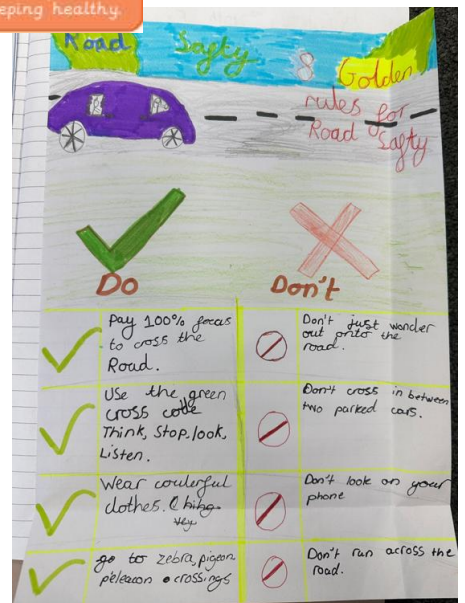 eping healthy.
Road Safty
8 Golden
rules for
Road Safty
Do
Don't
Pay 100% focus
to cross the
Road.
Don't just wander
out onto the
road.
Use the green
cross code
Think, Stop, look,
Listen.
Don't cross in between
two parked cars.
Wear coulerful
clothes.
Don't look on your
phone
go to zebra, pigeon
peleacon crossings
Don't run across the
road.